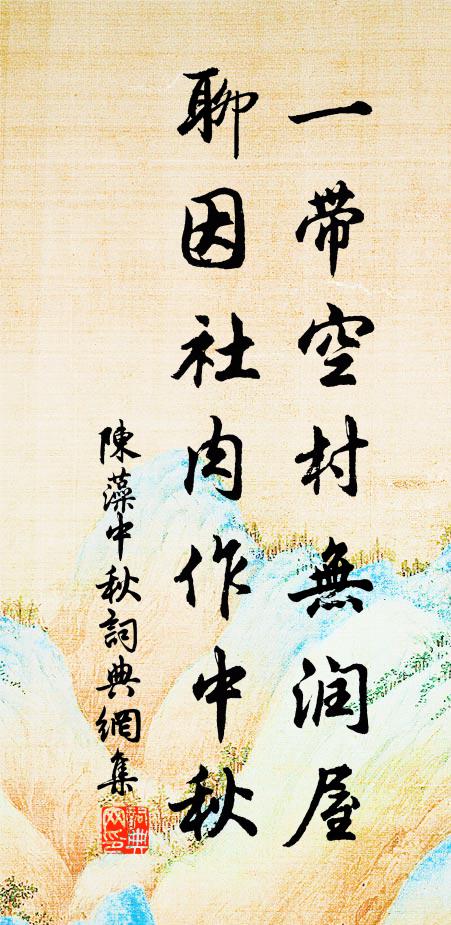 一帶空村無润屋
聊因社肉作中秋
陳藻中秋詞典網集